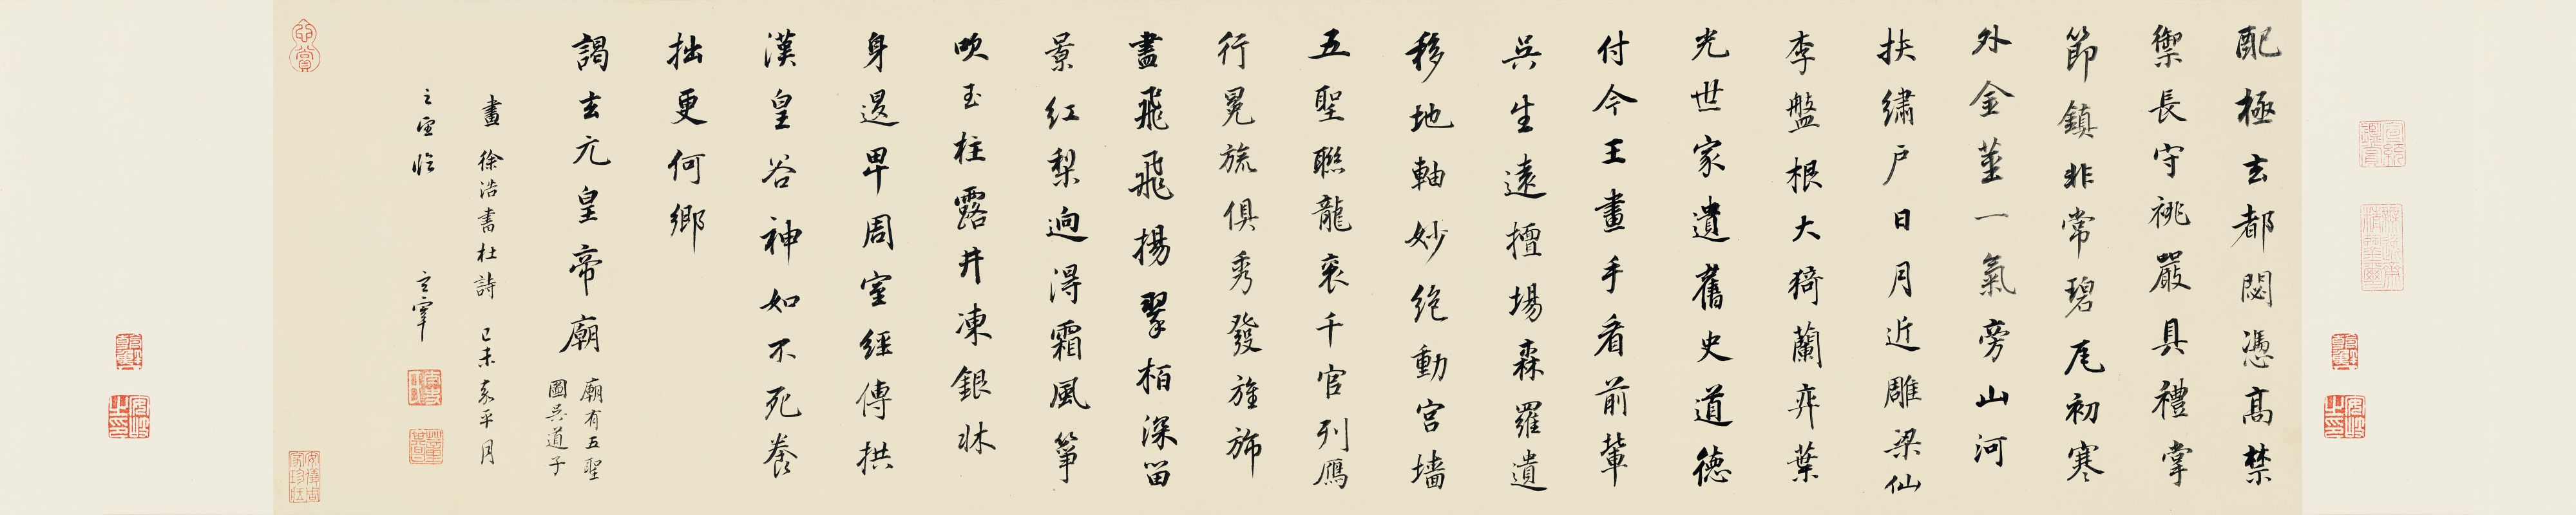 配極玄都閟憑高禁
禦長守祧嚴具禮掌
節鎮非常碧瓦初寒
外金莖一氣旁山河
扶繡戶日月近雕梁仙
李盤根大猗蘭奕葉
光世家遺舊史道德
付今王畫手看前輩
吳生遠擅場森羅遺
移地軸妙絕動宮墻
五聖聯龍袞千官列鴈
行冕旒俱秀發旌旆
盡飛飛揚翠柏深留
景紅梨迥得霜風箏
吹玉柱露井凍銀牀
身退卑周室經傳拱
漢皇谷神如不死養
拙更何鄉
謁玄元皇帝廟
廟有五聖
圖吳道子
畫 徐浩書杜詩 己未嘉平月
玄宰臨 玄宰
心賞
安岐之印
安岐之印